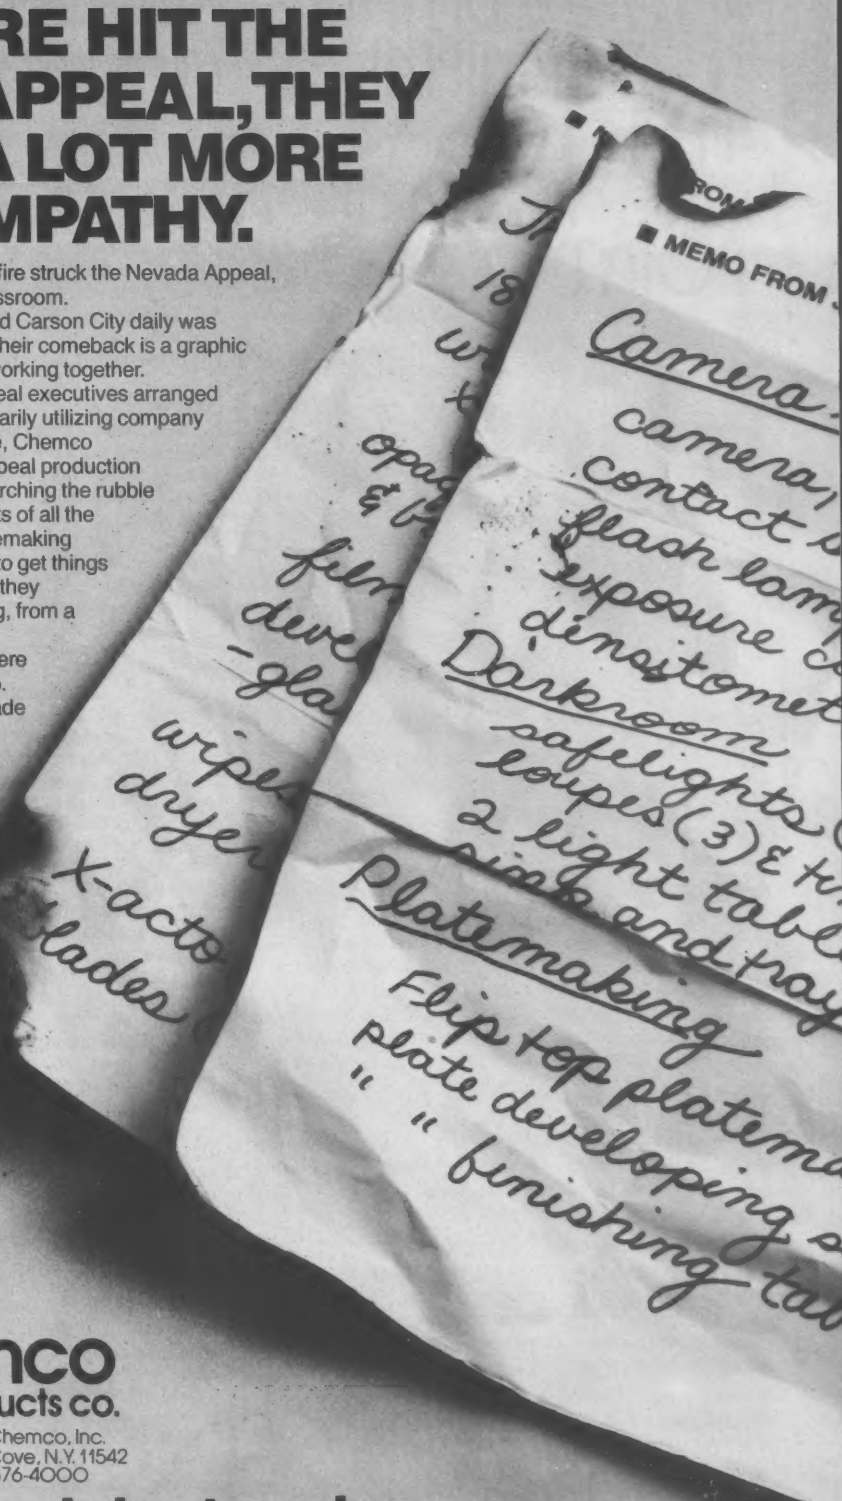 RE HIT THE
APPEAL, THEY
A LOT MORE
MPATHY.
fire struck the Nevada Appeal,
ssroom.
d Carson City daily was
heir comeback is a graphic
orking together.
eal executives arranged
arily utilizing company
e, Chemco
peal production
rching the rubble
ts of all the
emaking
to get things
they
g, from a
ere
o.
ade
ROM
■ MEMO FROM J
Camera
camera,
contact s
flash lam
exposure co
densitomet
Darkroom
safelights (
loupes (3) &
2 light table
sink and tray
Platemaking
Flip top platema
plate developing s
" " finishing tab
Th
18
w
x
opaq
& b
film
deve
-gla
wipes
dryer
X-acto
lades
nco
ucts co.
Chemco, Inc.
Cove, N.Y. 11542
576-4000